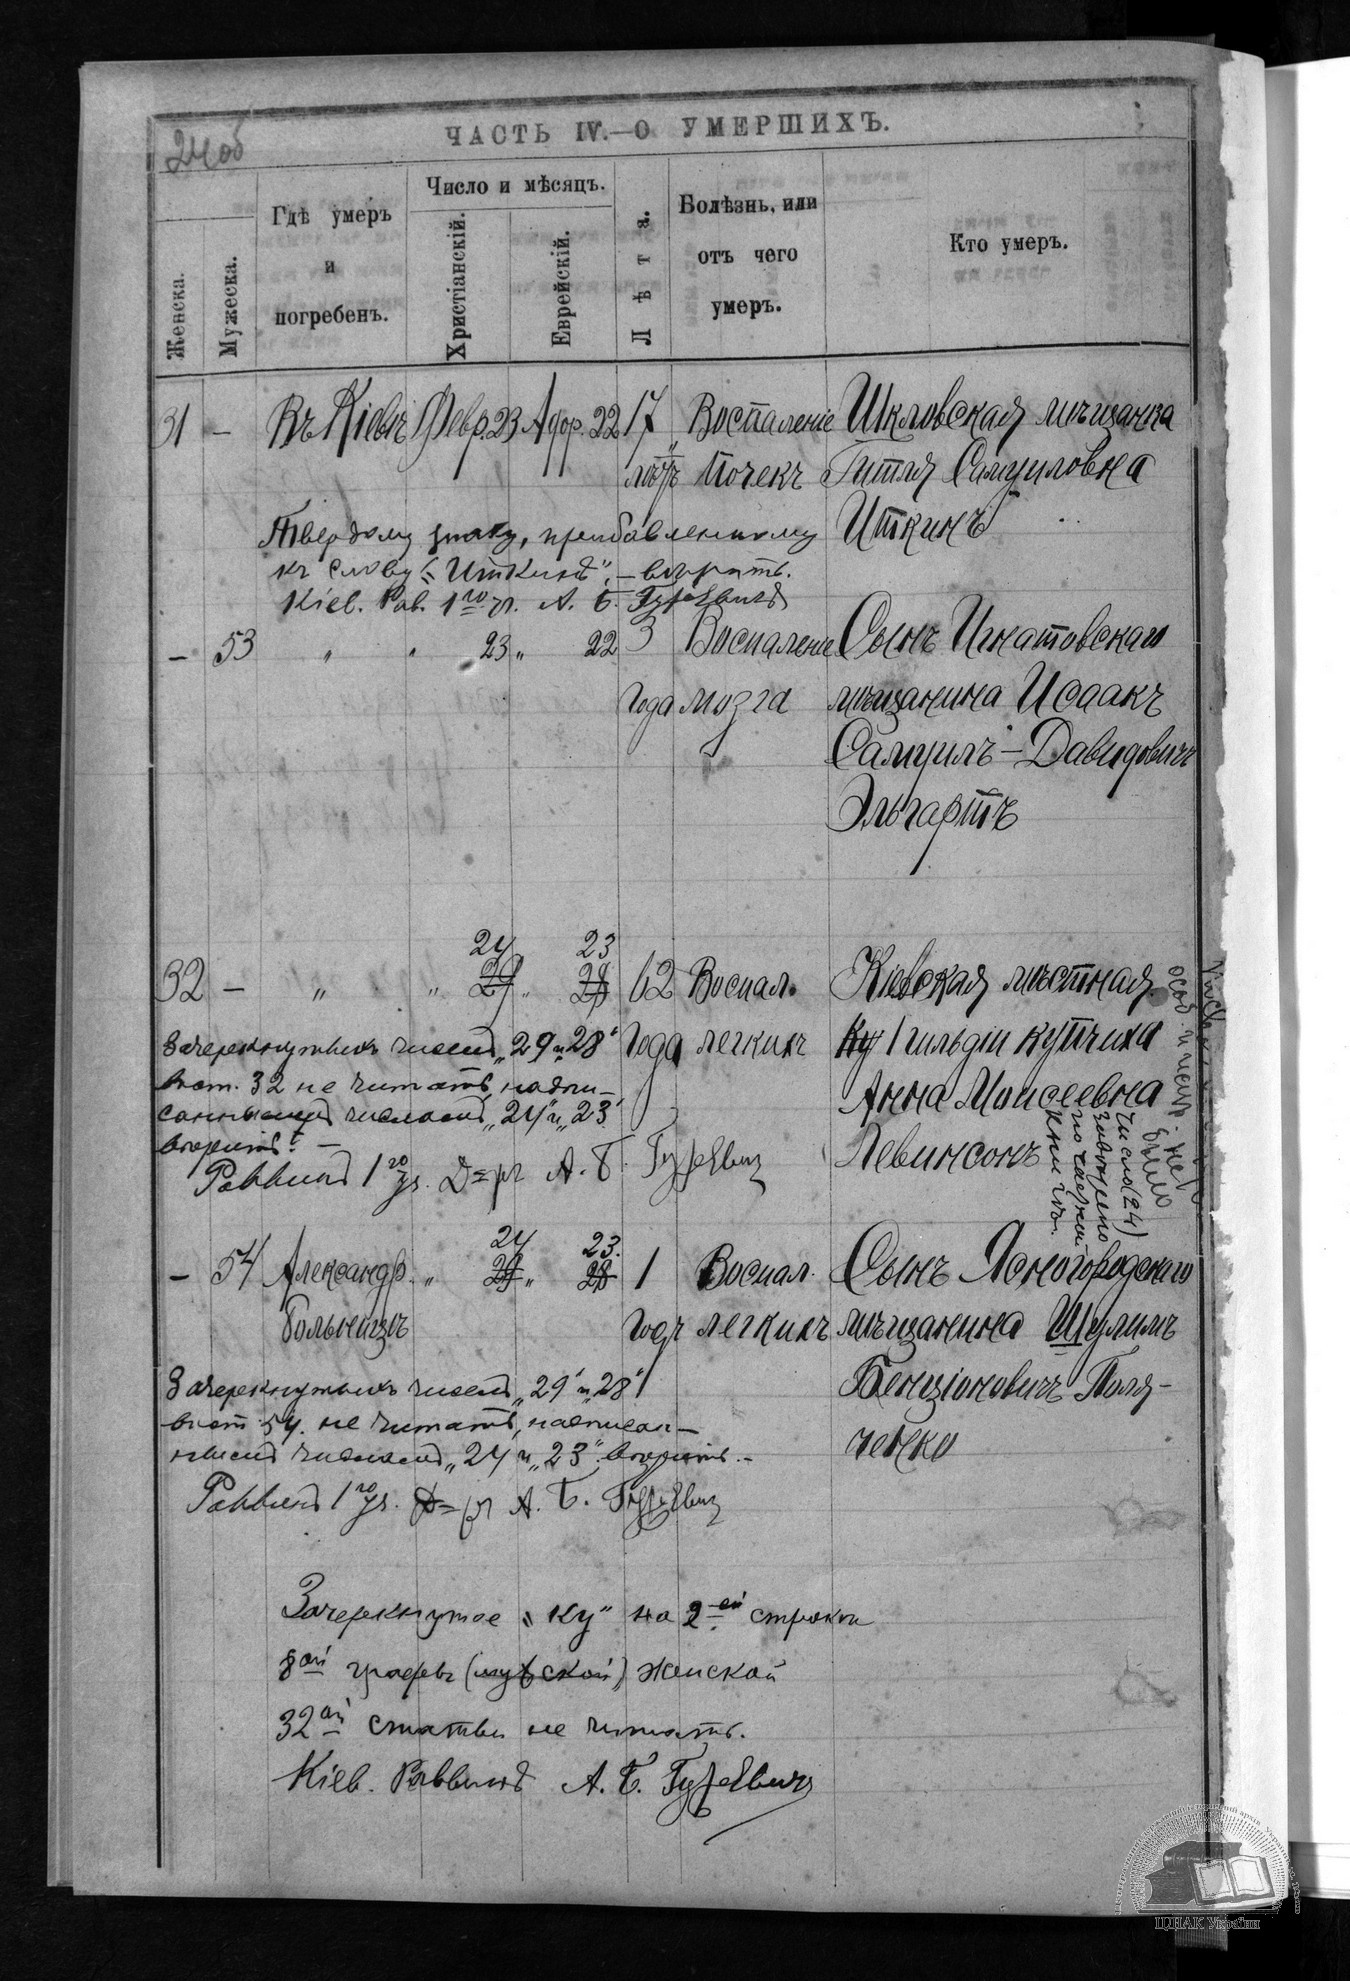 24об
ЧАСТЬ IV.—О УМЕРШИХЪ.
Женска.
Мужеска.
Гдѣ умеръ
и
погребенъ.
Число и мѣсяцъ.
Христіанскій.
Еврейскій.
Лѣта.
Болѣзнь, или
отъ чего
умеръ.
Кто умеръ.
31 — Въ Кіевѣ Февр. 23 Адор. 22 17 Воспаленіе Шкловская мѣщанка
лѣтъ почекъ Гитля Самуиловна
Иткинъ
Твердому знаку, прибавленному
къ слову „Иткинъ", — вѣрить.
Кіев. Рав. 1го уч. А. Б. Гуревичъ
— 53 „ „ 23 „ 22 3 Воспаленіе Сынъ Игнатовскаго
года мозга мѣщанина Исаакъ
Самуилъ-Давидовичъ
Эльгартъ
24 23
32 — „ „ 29 „ 28 62 Воспал. Кіевская мѣстная
года легкихъ Ку 1 гильдіи купчиха
Анна Моисеевна
Левинсонъ
Зачеркнутыхъ чиселъ „29" и „28"
въ ст. 32 не читать, надпи-
саннымъ числамъ „24" и „23"
вѣрить. —
Раввинъ 1го уч. Д-ръ А. Б. Гуревичъ
число (24)
24 23.
— 54 Александр. „ 29 „ 28 1 Воспал. Сынъ Ясногородскаго
больницѣ годъ легкихъ мѣщанина Шулимъ
Бенціоновичъ Поля-
ченко
Зачеркнутыхъ чиселъ „29" и „28"
въ ст. 54. не читать, надписан-
нымъ числамъ „24 и „23" вѣрить. —
Раввинъ 1го уч. Д-ръ А. Б. Гуревичъ
Зачеркнутое „Ку" на 2-ой строкѣ
8ой графы (мужской) женской
32ой статьи не читать.
Кіев. Раввинъ А. Б. Гуревичъ
ЦДІАК України